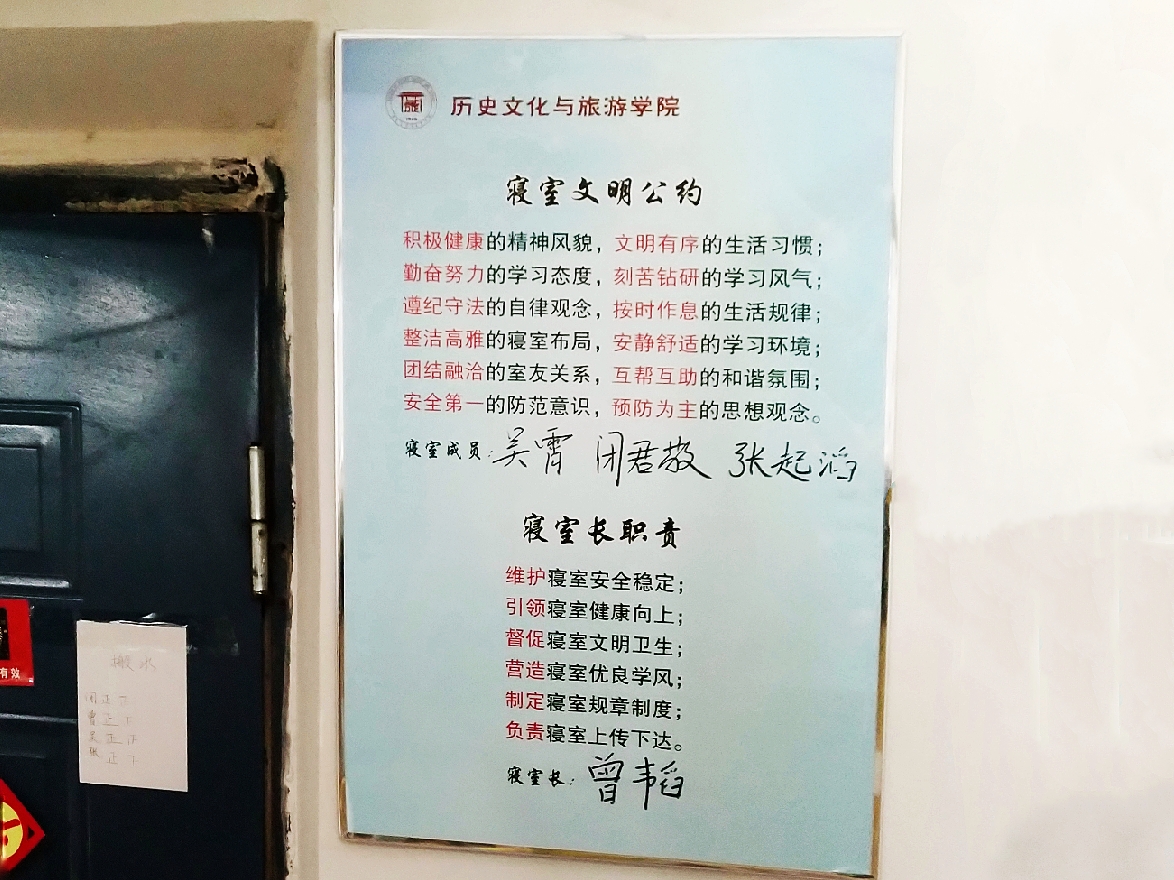 历史文化与旅游学院
寝室文明公约
积极健康的精神风貌，文明有序的生活习惯；
勤奋努力的学习态度，刻苦钻研的学习风气；
遵纪守法的自律观念，按时作息的生活规律；
整洁高雅的寝室布局，安静舒适的学习环境；
团结融洽的室友关系，互帮互助的和谐氛围；
安全第一的防范意识，预防为主的思想观念。
寝室成员：吴霄 闭君敬 张起滔
寝室长职责
维护寝室安全稳定；
引领寝室健康向上；
督促寝室文明卫生；
营造寝室优良学风；
制定寝室规章制度；
负责寝室上传下达。
寝室长：曾韦韬
有效
搬水
闭 正 丅
曾 正 丅
吴 正 正
张 正 丅